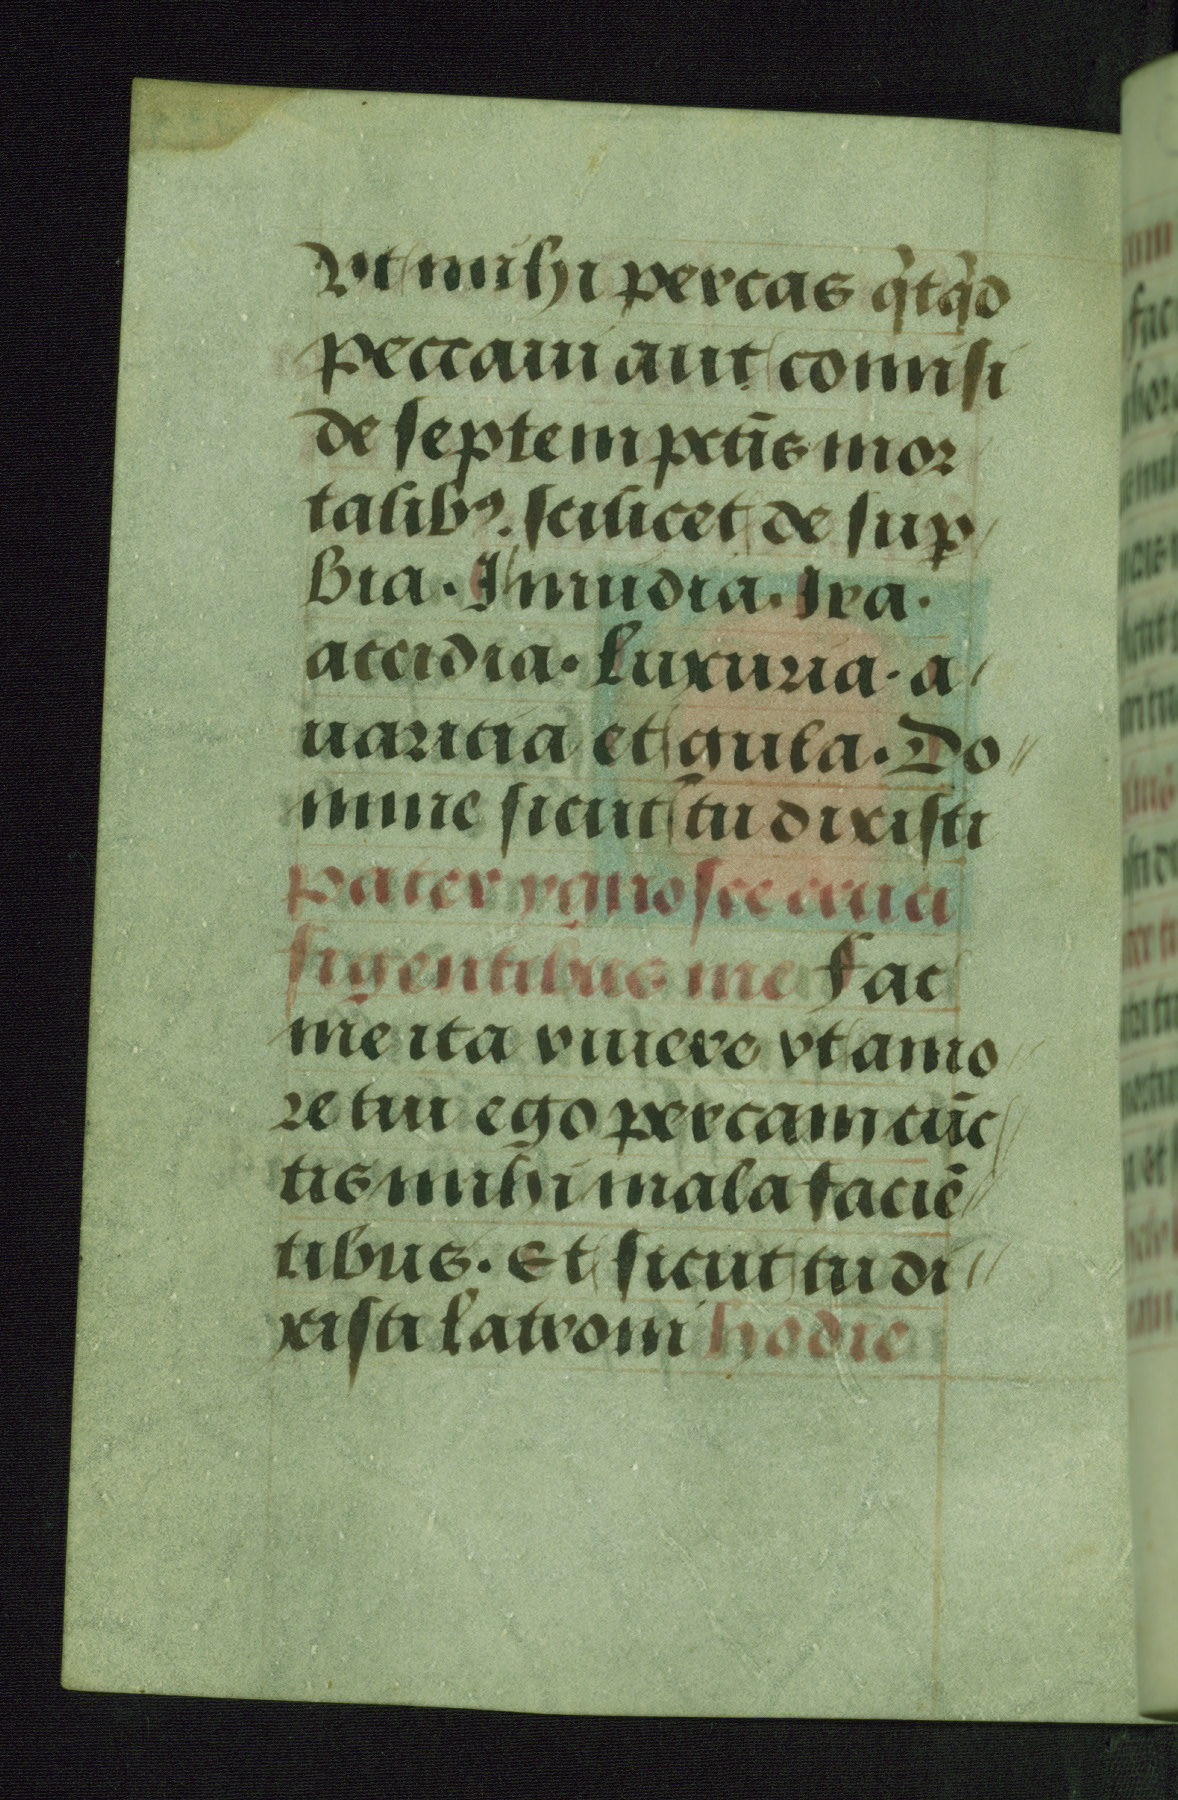 vt mihi percas qͥtqͥd
peccaui aut comisi
de septem pctīs mor
talibꝰ. scilicet de suꝑ
bia. Inuidia. Ira.
accidia. luxuria. a
uaricia et gula. Do
mine sicut tu dixisti
pater ygnosce cruci
figentibus me fac
me ita viuere vt amo
re tui ego percam cūc
tis mihi mala faciē
tibus. Et sicut tu di
xisti latroni hodie